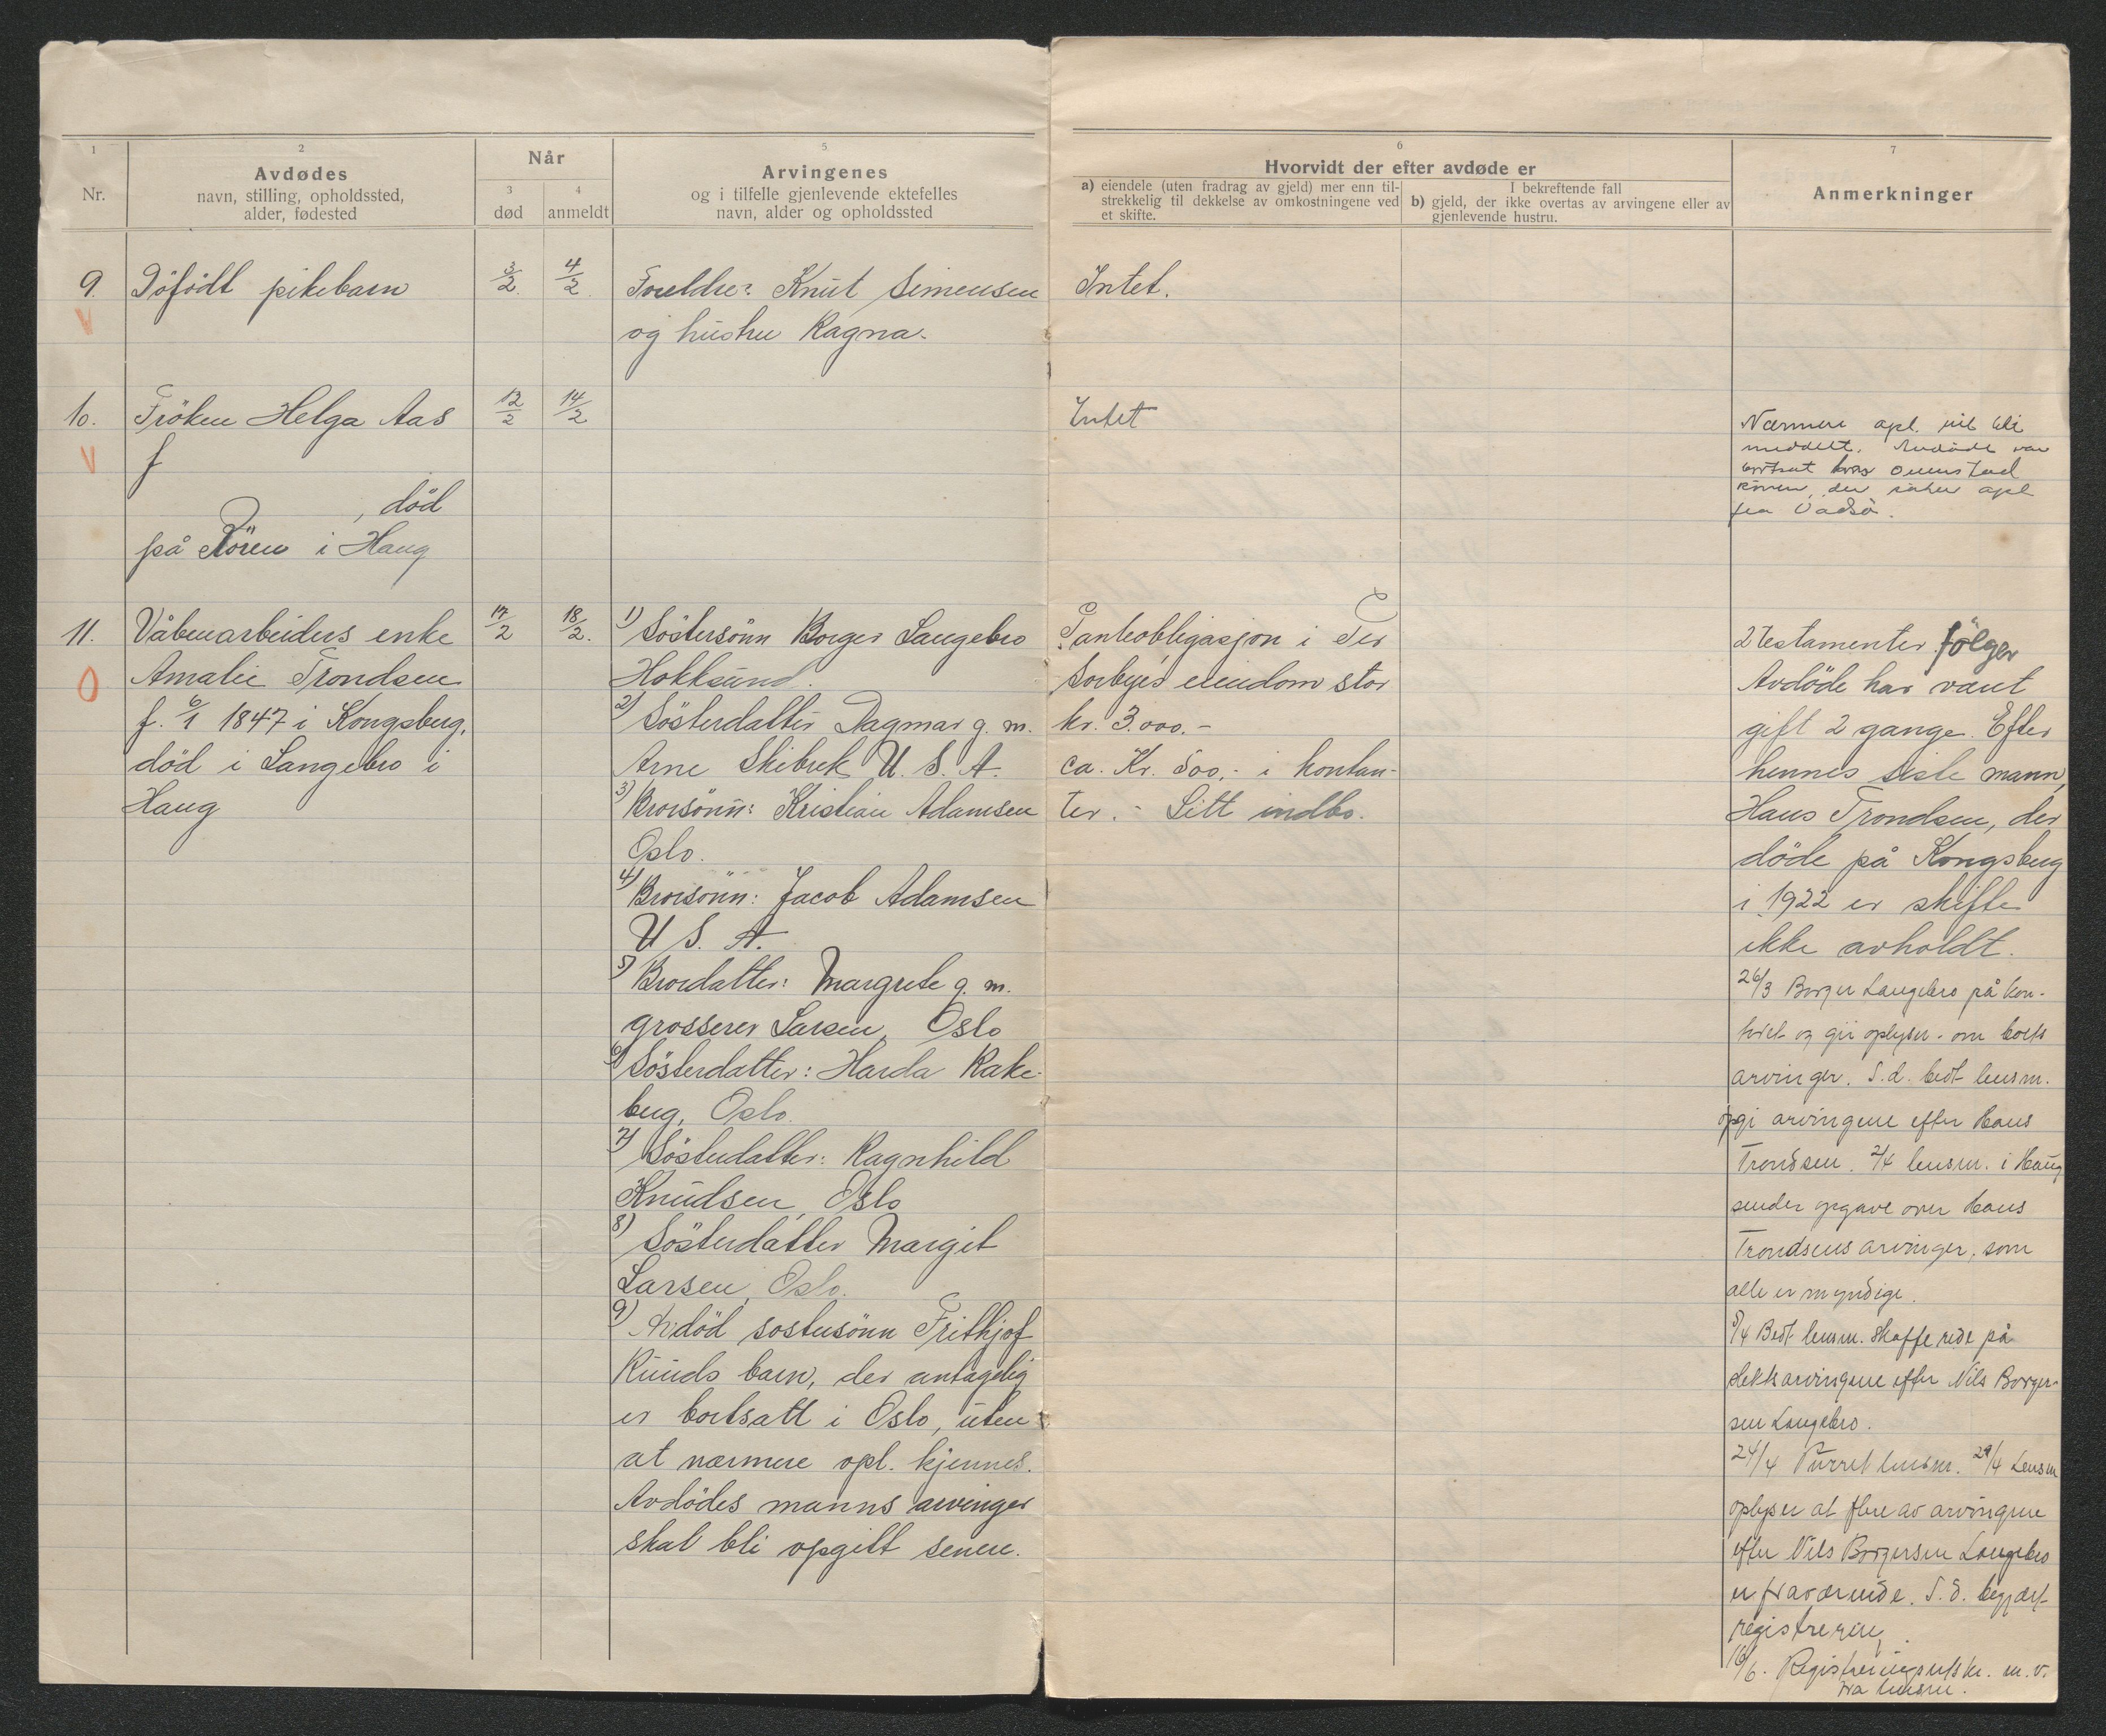 1
Nr.
2
Avdødes
navn, stilling, opholdssted,
alder, fødested
Når
3
død
4
anmeldt
5
Arvingenes
og i tilfelle gjenlevende ektefelles
navn, alder og opholdssted
6
Hvorvidt der efter avdøde er
a) eiendele (uten fradrag av gjeld) mer enn til-
strekkelig til dekkelse av omkostningene ved
et skifte.
I bekreftende fall
b) gjeld, der ikke overtas av arvingene eller av
gjenlevende hustru.
7
Anmerkninger
9.
V
Döfödt pikebarn
3/2
4/2
Foreldre: Knut Simensen
og hustru Ragna.
Intet.
10.
V
Fröken Helga Aas
f
, död
på Rören i Haug
12/2
14/2
Intet
Nærmere opl. vil bli
meddelt. Avdøde var
bortsat hos
der opl
fra Vadsö.
11.
O
Våbenarbeiders enke
Amalie Trondsen
f. 6/1 1847 i Kongsberg,
död i Langebro i
Haug
17/2
18/2.
1) Söstersönn Borger Langebro
Hokksund.
2) Sösterdatter Dagmar g. m.
Arne Skibrek U. S. A.
3) Brorsönn: Kristian Adamsen
Oslo.
4) Brorsönn: Jacob Adamsen
U S. A.
5) Brordatter: Margrete g. m.
grosserer Larsen, Oslo
6) Sösterdatter: Harda Rake-
berg, Oslo.
7) Sösterdatter: Ragnhild
Knudsen, Oslo
8) Sösterdatter Margit
Larsen, Oslo.
9) Avdöd söstersönn Frithjof
Ruuds barn, der antagelig
er bortsatt i Oslo, uten
at nærmere opl. kjennes.
Avdödes manns arvinger
skal bli opgitt senere.
Panteobligasjon i Per
Sorbyes eiendom stor
kr. 3.000.-
ca. Kr. 500,- i kontan-
ter. - Litt indbo.
2 testamenter fölger
Avdöde har vært
gift 2 gange. Efter
hennes siste mann,
Hans Trondsen, der
döde på Kongsberg
i 1922 er skifte
ikke avholdt.
26/3 Borger Langebro på kon-
toret og gir oplysn. om
arvinger. S.d. bedt lensm.
opgi arvingene efter Hans
Trondsen. 2/4 lensm. i Haug
sender opgave over Hans
Trondsens arvinger, som
alle er myndige.
9/4 Bedt lensm. skaffe rede på
slektsarvingene efter Nils Borger-
sen Langebro.
24/4 Purret lensm. 29/4 Lensm
oplyser at flere av arvingene
efter Nils Borgersen Langebro
er fraværende. S. d. begjært
registrering.
16/6. Registreringsutskr. m. v.
fra lensm.